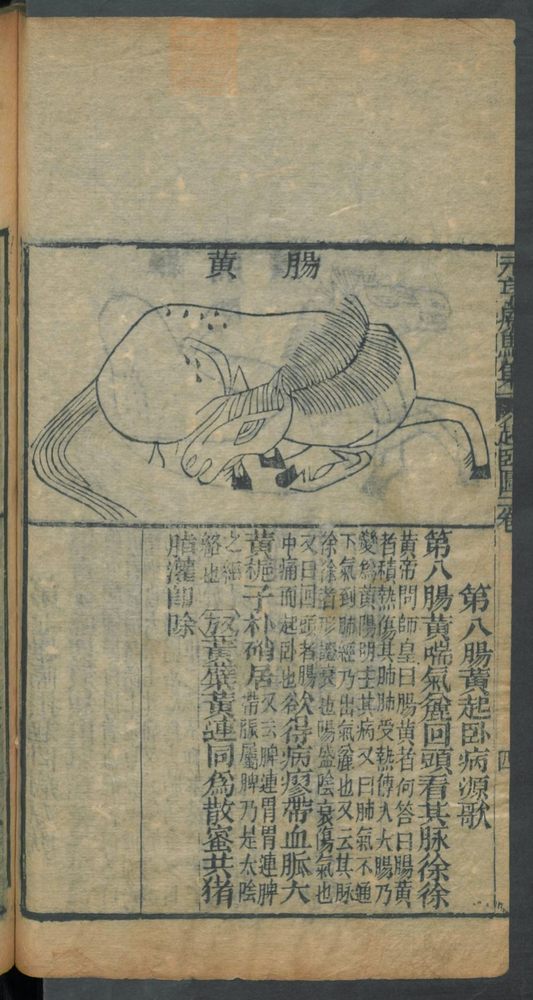 腸黄
第八腸黃起臥病源歌
第八腸黃喘氣麄回頭看其脉徐徐
黃帝問師皇曰腸黃者何答曰腸黃
者積熱傷其肺肺受熱傳入大腸乃
變爲黃陽明主其病又曰肺氣不通
下氣到肺經乃出氣麄也又云其脉
徐徐者形證衰也陽盛陰衰傷氣也
又曰回頭者腸
中痛而起臥也
欲得病瘳帶血脈大
黃梔子朴硝居
又云脾連胃胃連脾
帶脈屬脾乃是太陰
之經
絡也
黃蘗黃連同爲散蜜共猪
脂灌即除
四